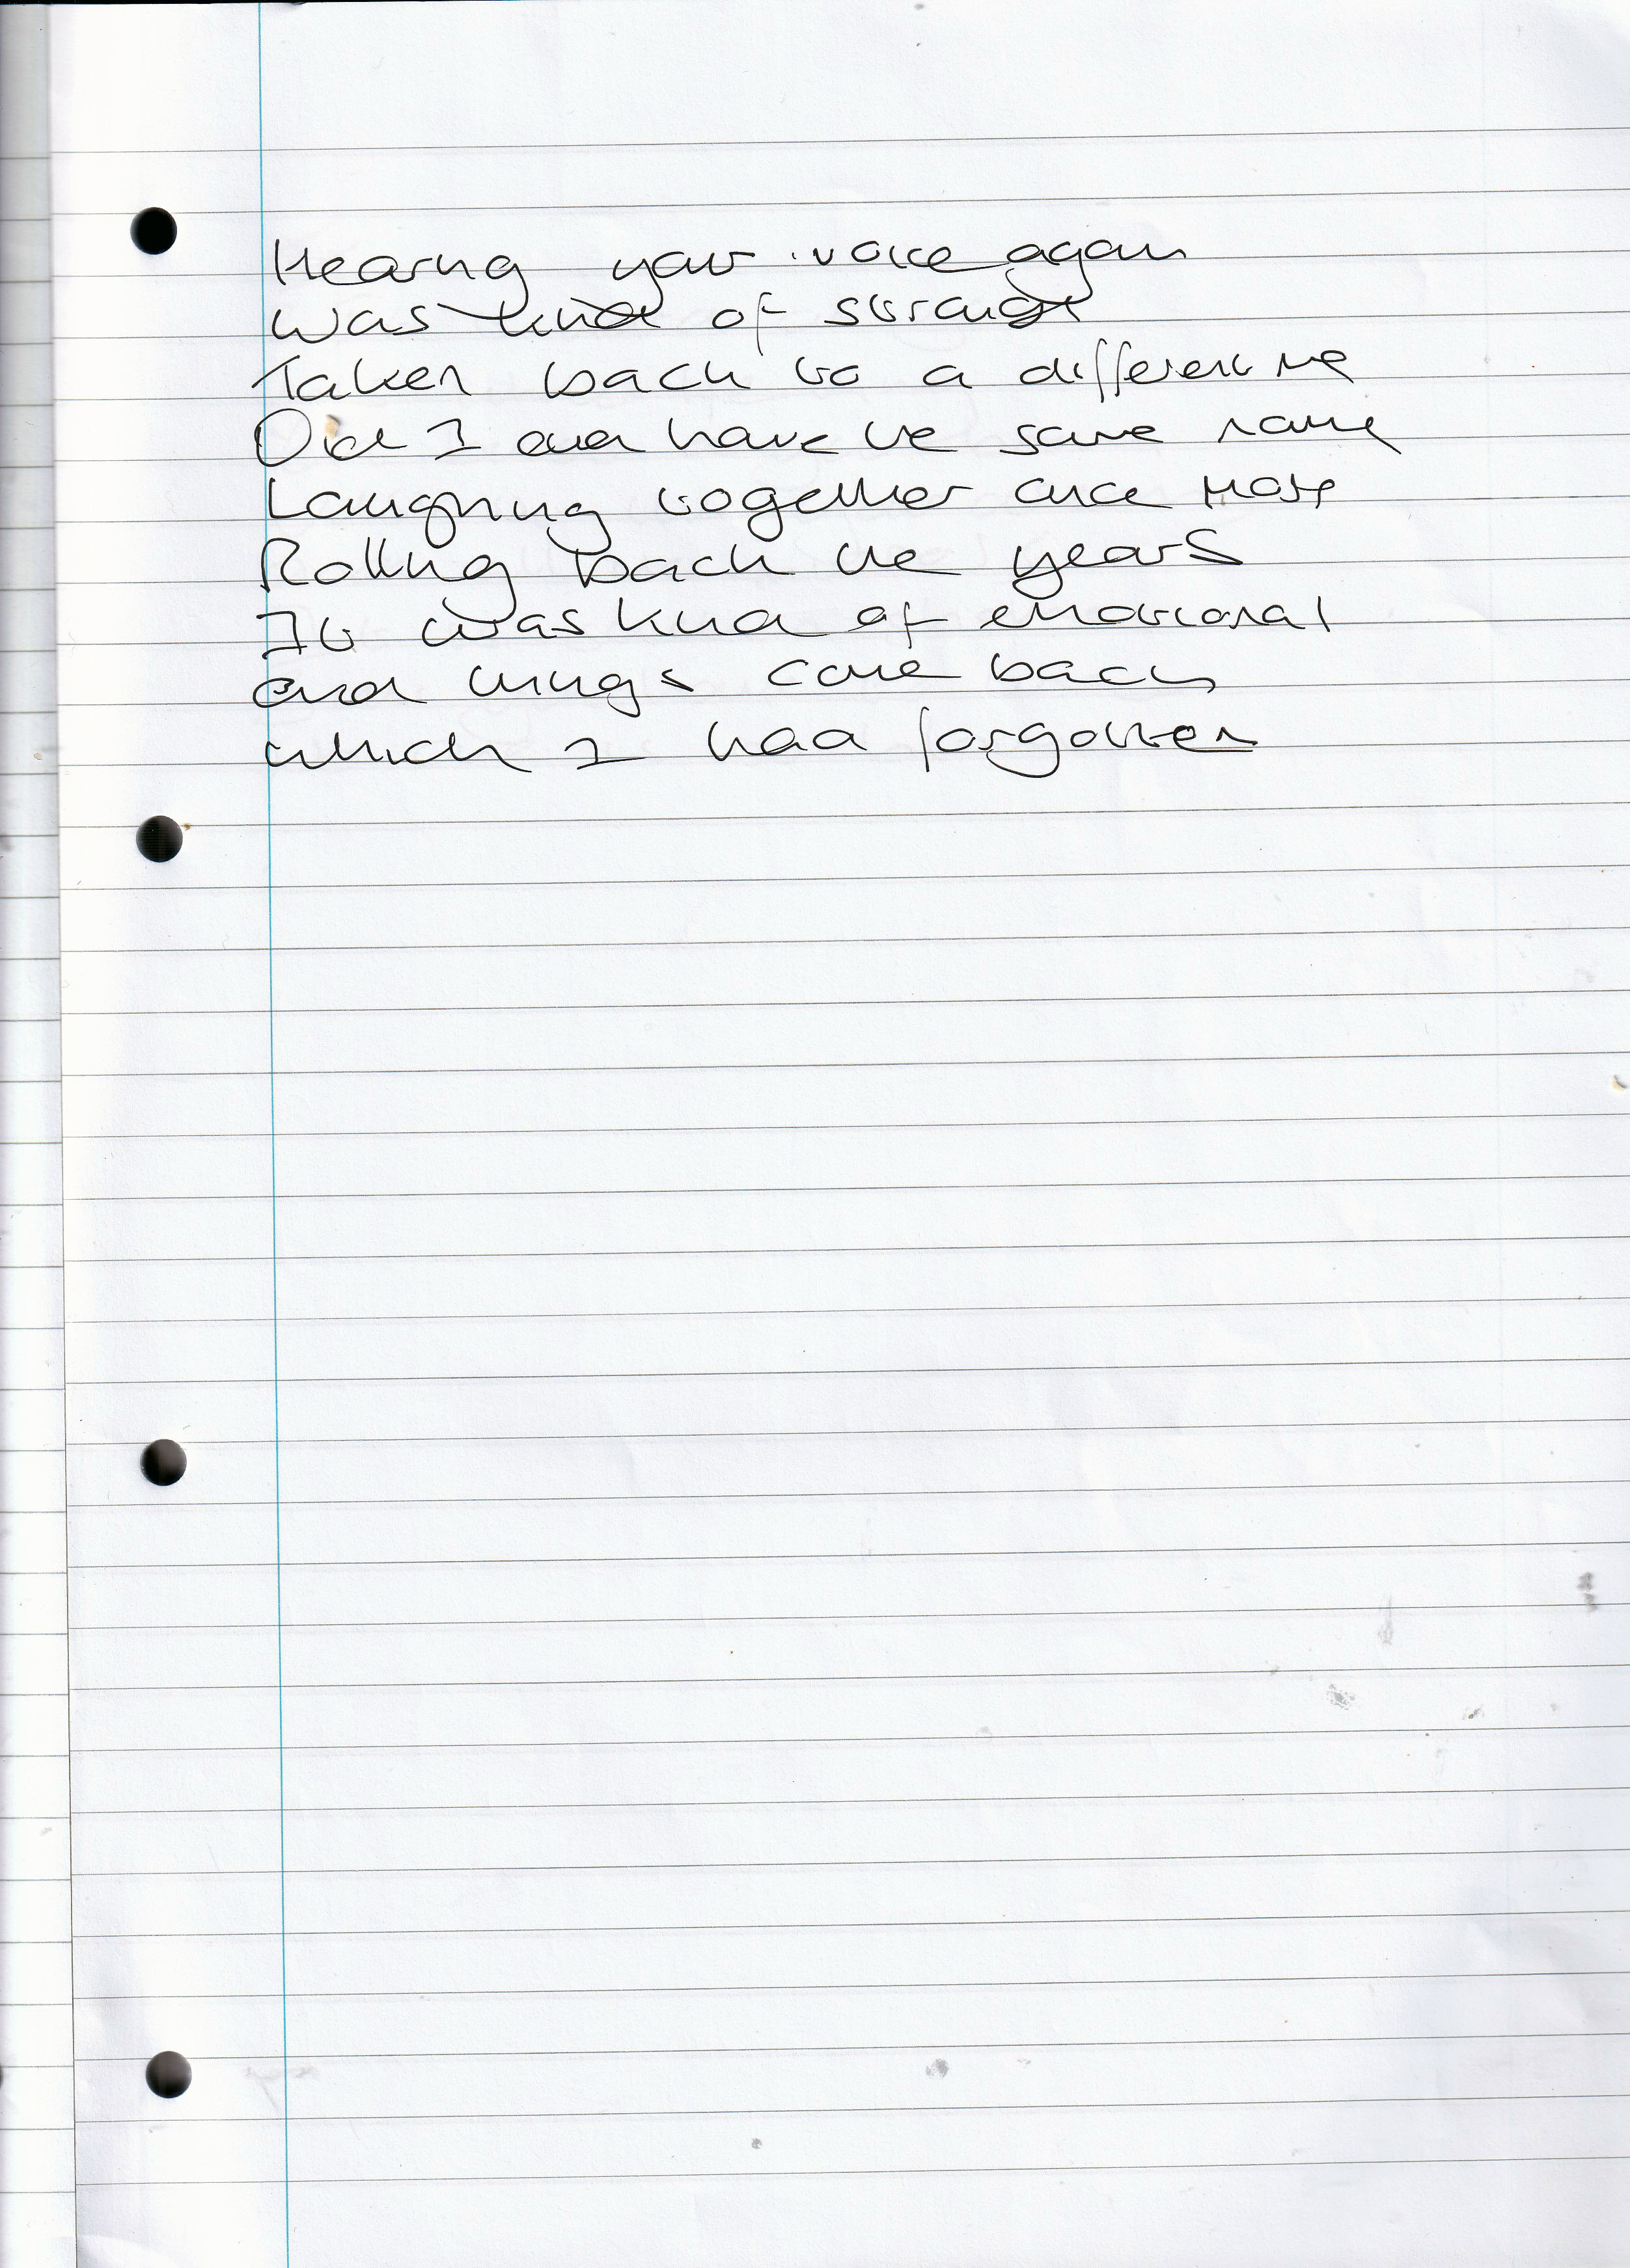 Hearing your voice again
Was kind of strange
Taken back to a different me
Did I even have the same name
Laughing together once more
Rolling back the years
It was kind of emotional
and things came back
which I had forgotten